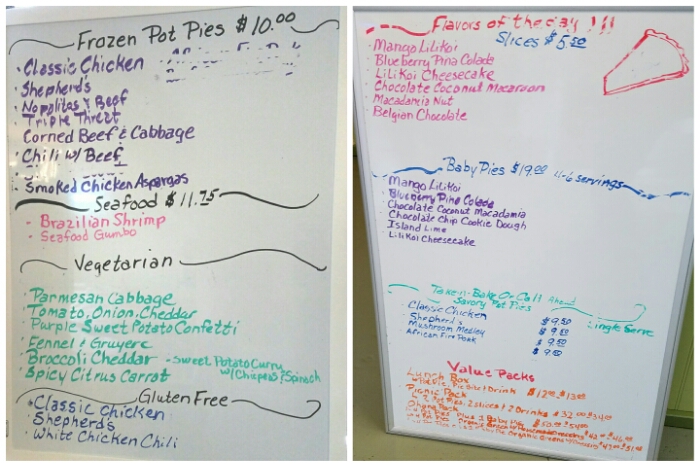 Frozen Pot Pies $10.00
Classic Chicken
Shepherd's
Nopalitos & Beef
Triple Threat
Corned Beef & Cabbage
Chili w/ Beef
Smoked Chicken Aspargas
Seafood $11.75
- Brazilian Shrimp
- Seafood Gumbo
Vegetarian
Parmesan Cabbage
Tomato, Onion, Cheddar
Purple Sweet Potato Confetti
Fennel & Gruyere
Broccoli Cheddar - Sweet Potato Curry
w/ Chickpeas & Spinach
Spicy Citrus Carrot
Gluten Free
Classic Chicken
Shepherd's
White Chicken Chili
Flavors of the day !!!
Slices $5.50
Mango Lilikoi
Blueberry Pina Colada
Lilikoi Cheesecake
Chocolate Coconut Macaroon
Macadamia Nut
Belgian Chocolate
Baby Pies $19.00 4-6 servings
Mango Lilikoi
Blueberry Pina Colada
Chocolate Coconut Macadamia
Chocolate Chip Cookie Dough
Island Lime
Lilikoi Cheesecake
Take-n-Bake Or Call Ahead
Savory Pot Pies
Single Serve
Classic Chicken $9.50
Shepherd's $9.50
Mushroom Medley $9.50
African Fire Pork $9.50
Value Packs
Lunch Box
Picnic Pack
2 slices 2 Drinks
Ohana Pack